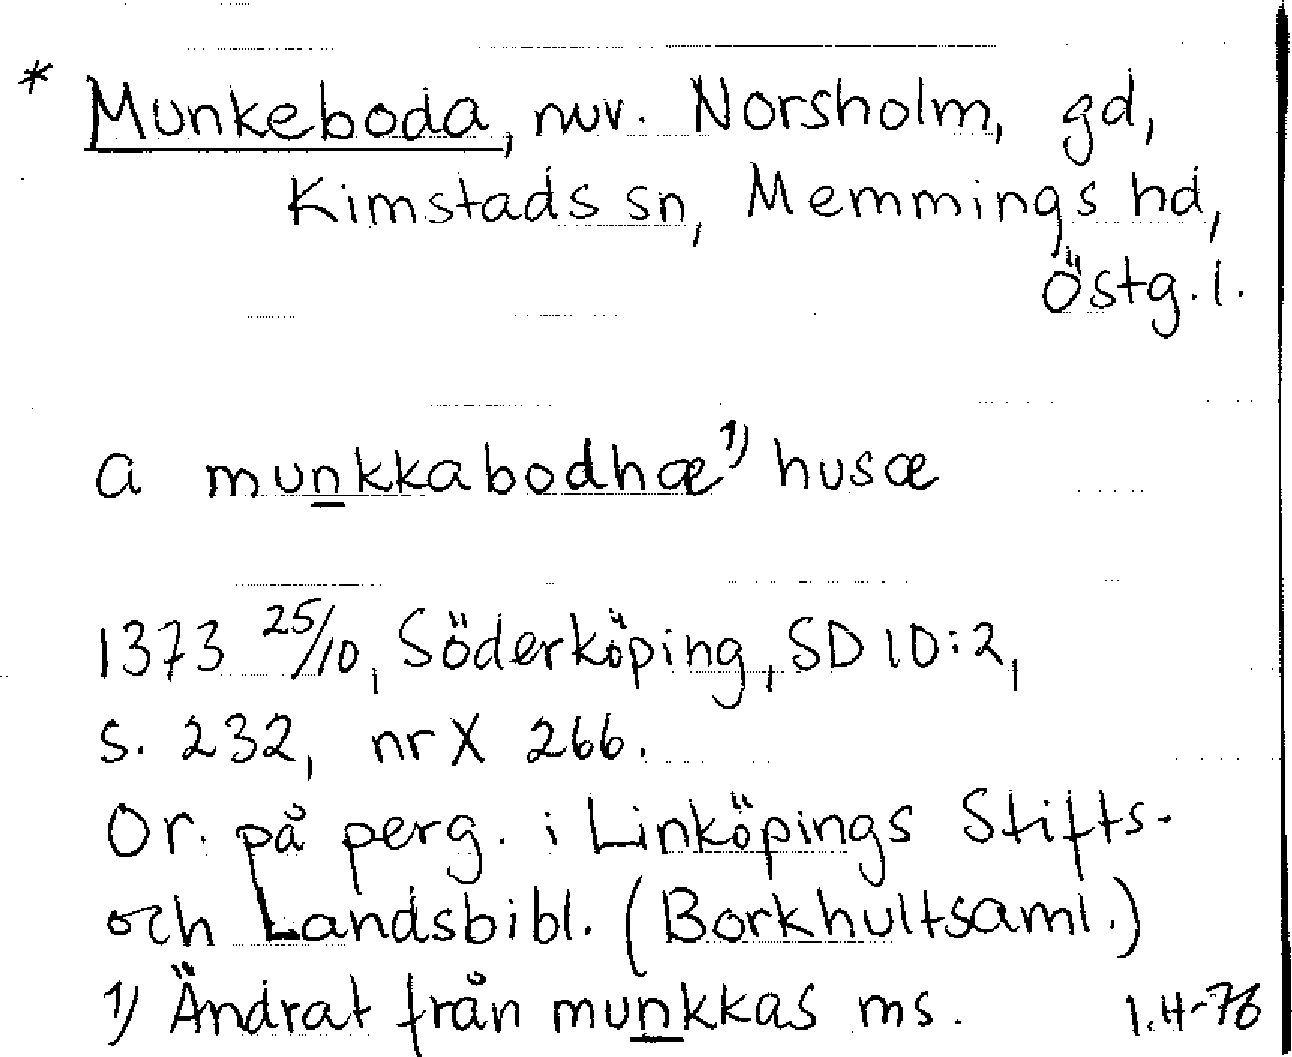 * Munkeboda, nuv. Norsholm, gd,
Kimstads sn, Memmings hd,
Östg. l.
a munkkabodhæ¹⁾ husæ
1373 25/10, Söderköping, SD 10:2,
s. 232, nr X 266.
Or. på perg. i Linköpings Stifts-
och Landsbibl. (Borkhultsaml.)
1) Ändrat från munkkas ms. I.H-76